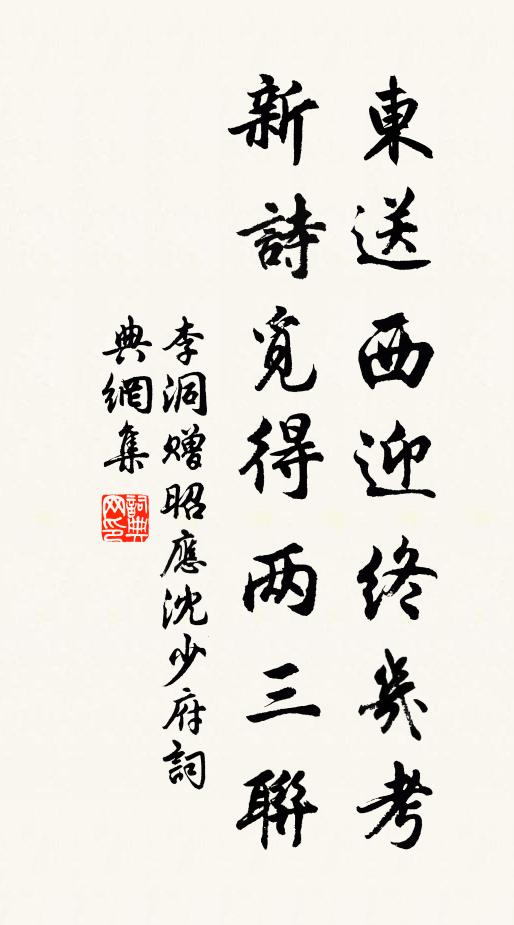 東送西迎終幾考
新詩覓得两三聯
李洞贈昭應沈少府詞
典網集
詞典
网印